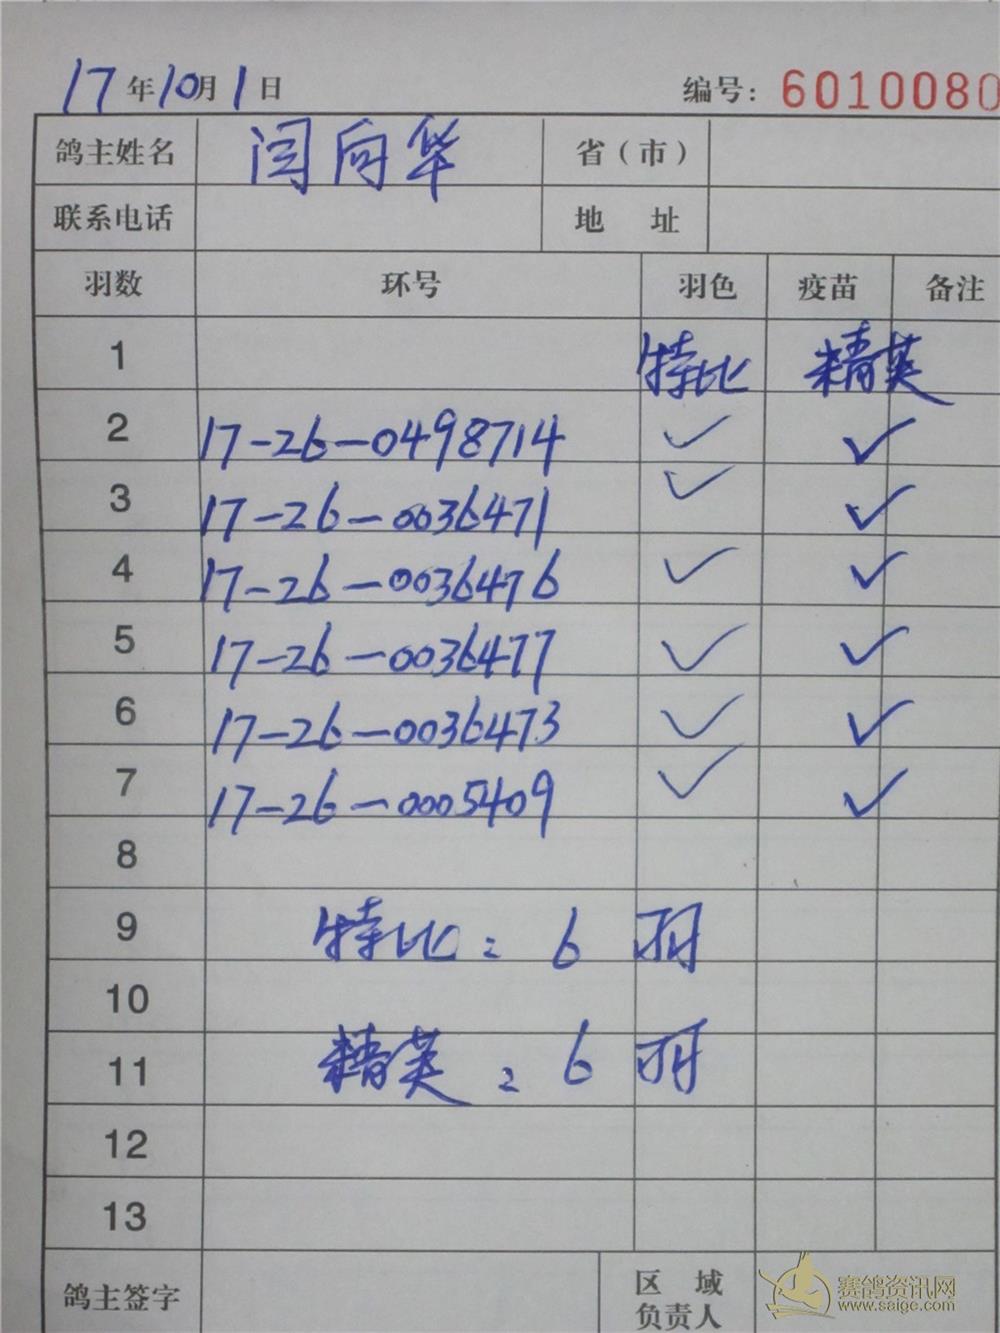 17年10月1日 编号：6010080
鸽主姓名 闫向华 省（市）
联系电话 地 址
羽数 环号 羽色 疫苗 备注
1 特比 精英
2 17-26-0498714 ✓ ✓
3 17-26-0036471 ✓ ✓
4 17-26-0036476 ✓ ✓
5 17-26-0036477 ✓ ✓
6 17-26-0036473 ✓ ✓
7 17-26-0005409 ✓ ✓
8
9 特比：6羽
10
11 精英：6羽
12
13
鸽主签字 区 域
负责人
赛鸽资讯网
www.saige.com